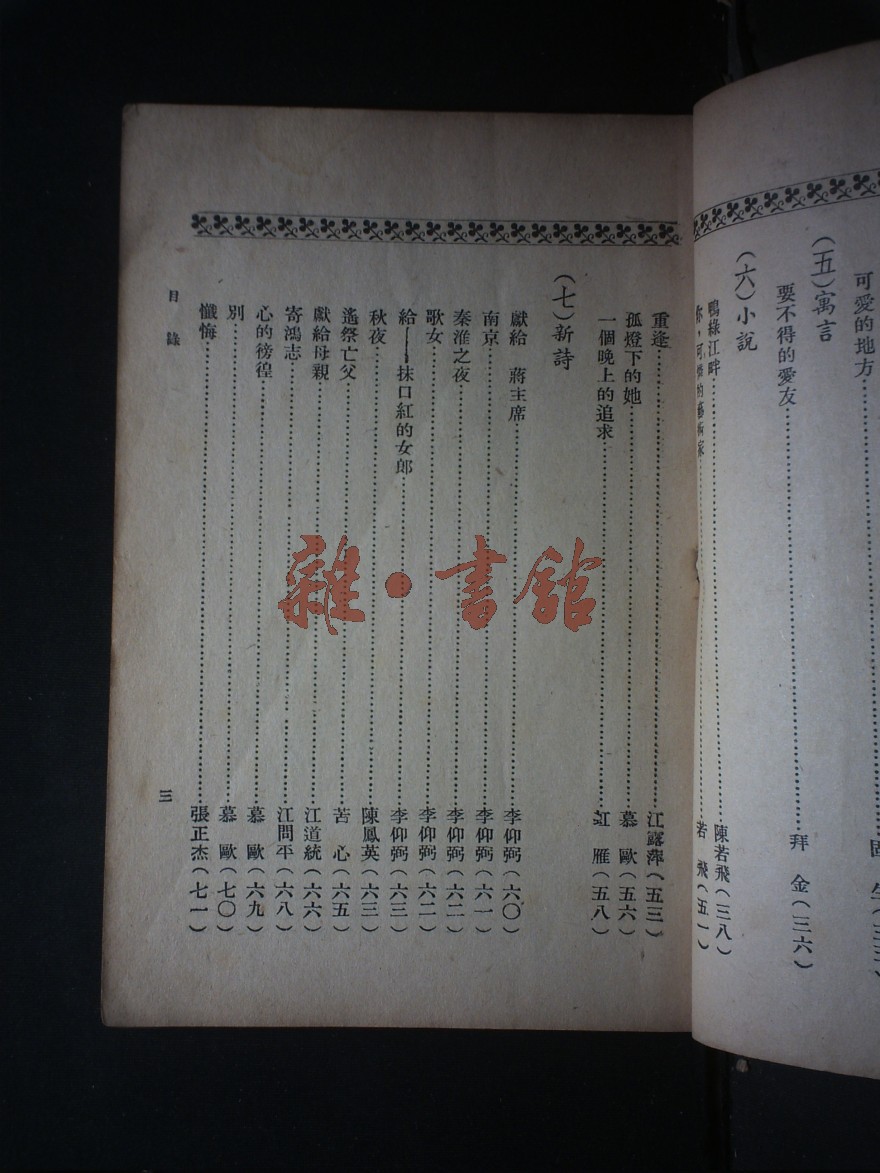 可愛的地方
(五)寓言
要不得的愛友………拜 金(三六)
(六)小說
鴨綠江畔………陳若飛(三八)
若 飛(五一)
重逢………江露萍(五三)
孤燈下的她………慕 歐(五六)
一個晚上的追求………江 雁(五八)
(七)新詩
獻給 蔣主席………李仰弼(六〇)
南京………李仰弼(六一)
秦淮之夜………李仰弼(六二)
歌女………李仰弼(六二)
給——抹口紅的女郎………李仰弼(六三)
秋夜………陳鳳英(六三)
遙祭亡父………苦 心(六五)
獻給母親………江道統(六六)
寄鴻志………江問平(六八)
心的徬徨………慕 歐(六九)
別………慕 歐(七〇)
懺悔………張正杰(七一)
目錄
三
雜·書館